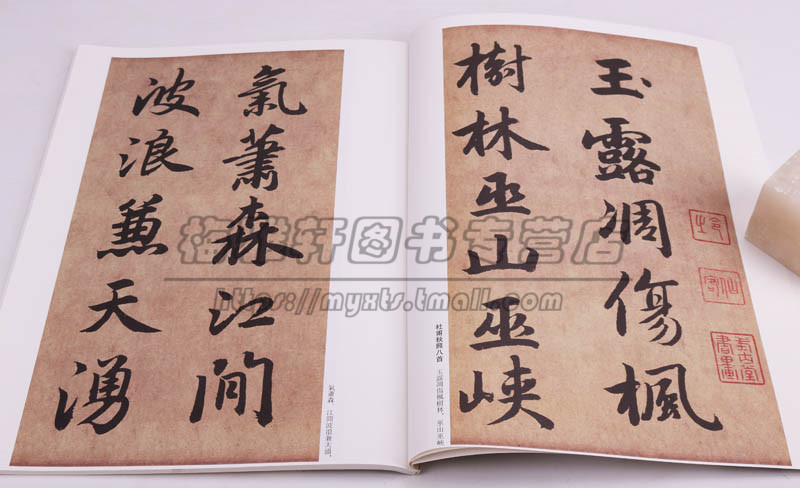 玉露凋傷楓
樹林巫山巫峽
杜甫秋興八首
玉露凋傷楓樹林，巫山巫峽
氣蕭森江間
波浪兼天湧
氣蕭森。江間波浪兼天湧，
轩图书专营店
https://myxts.tmall.com